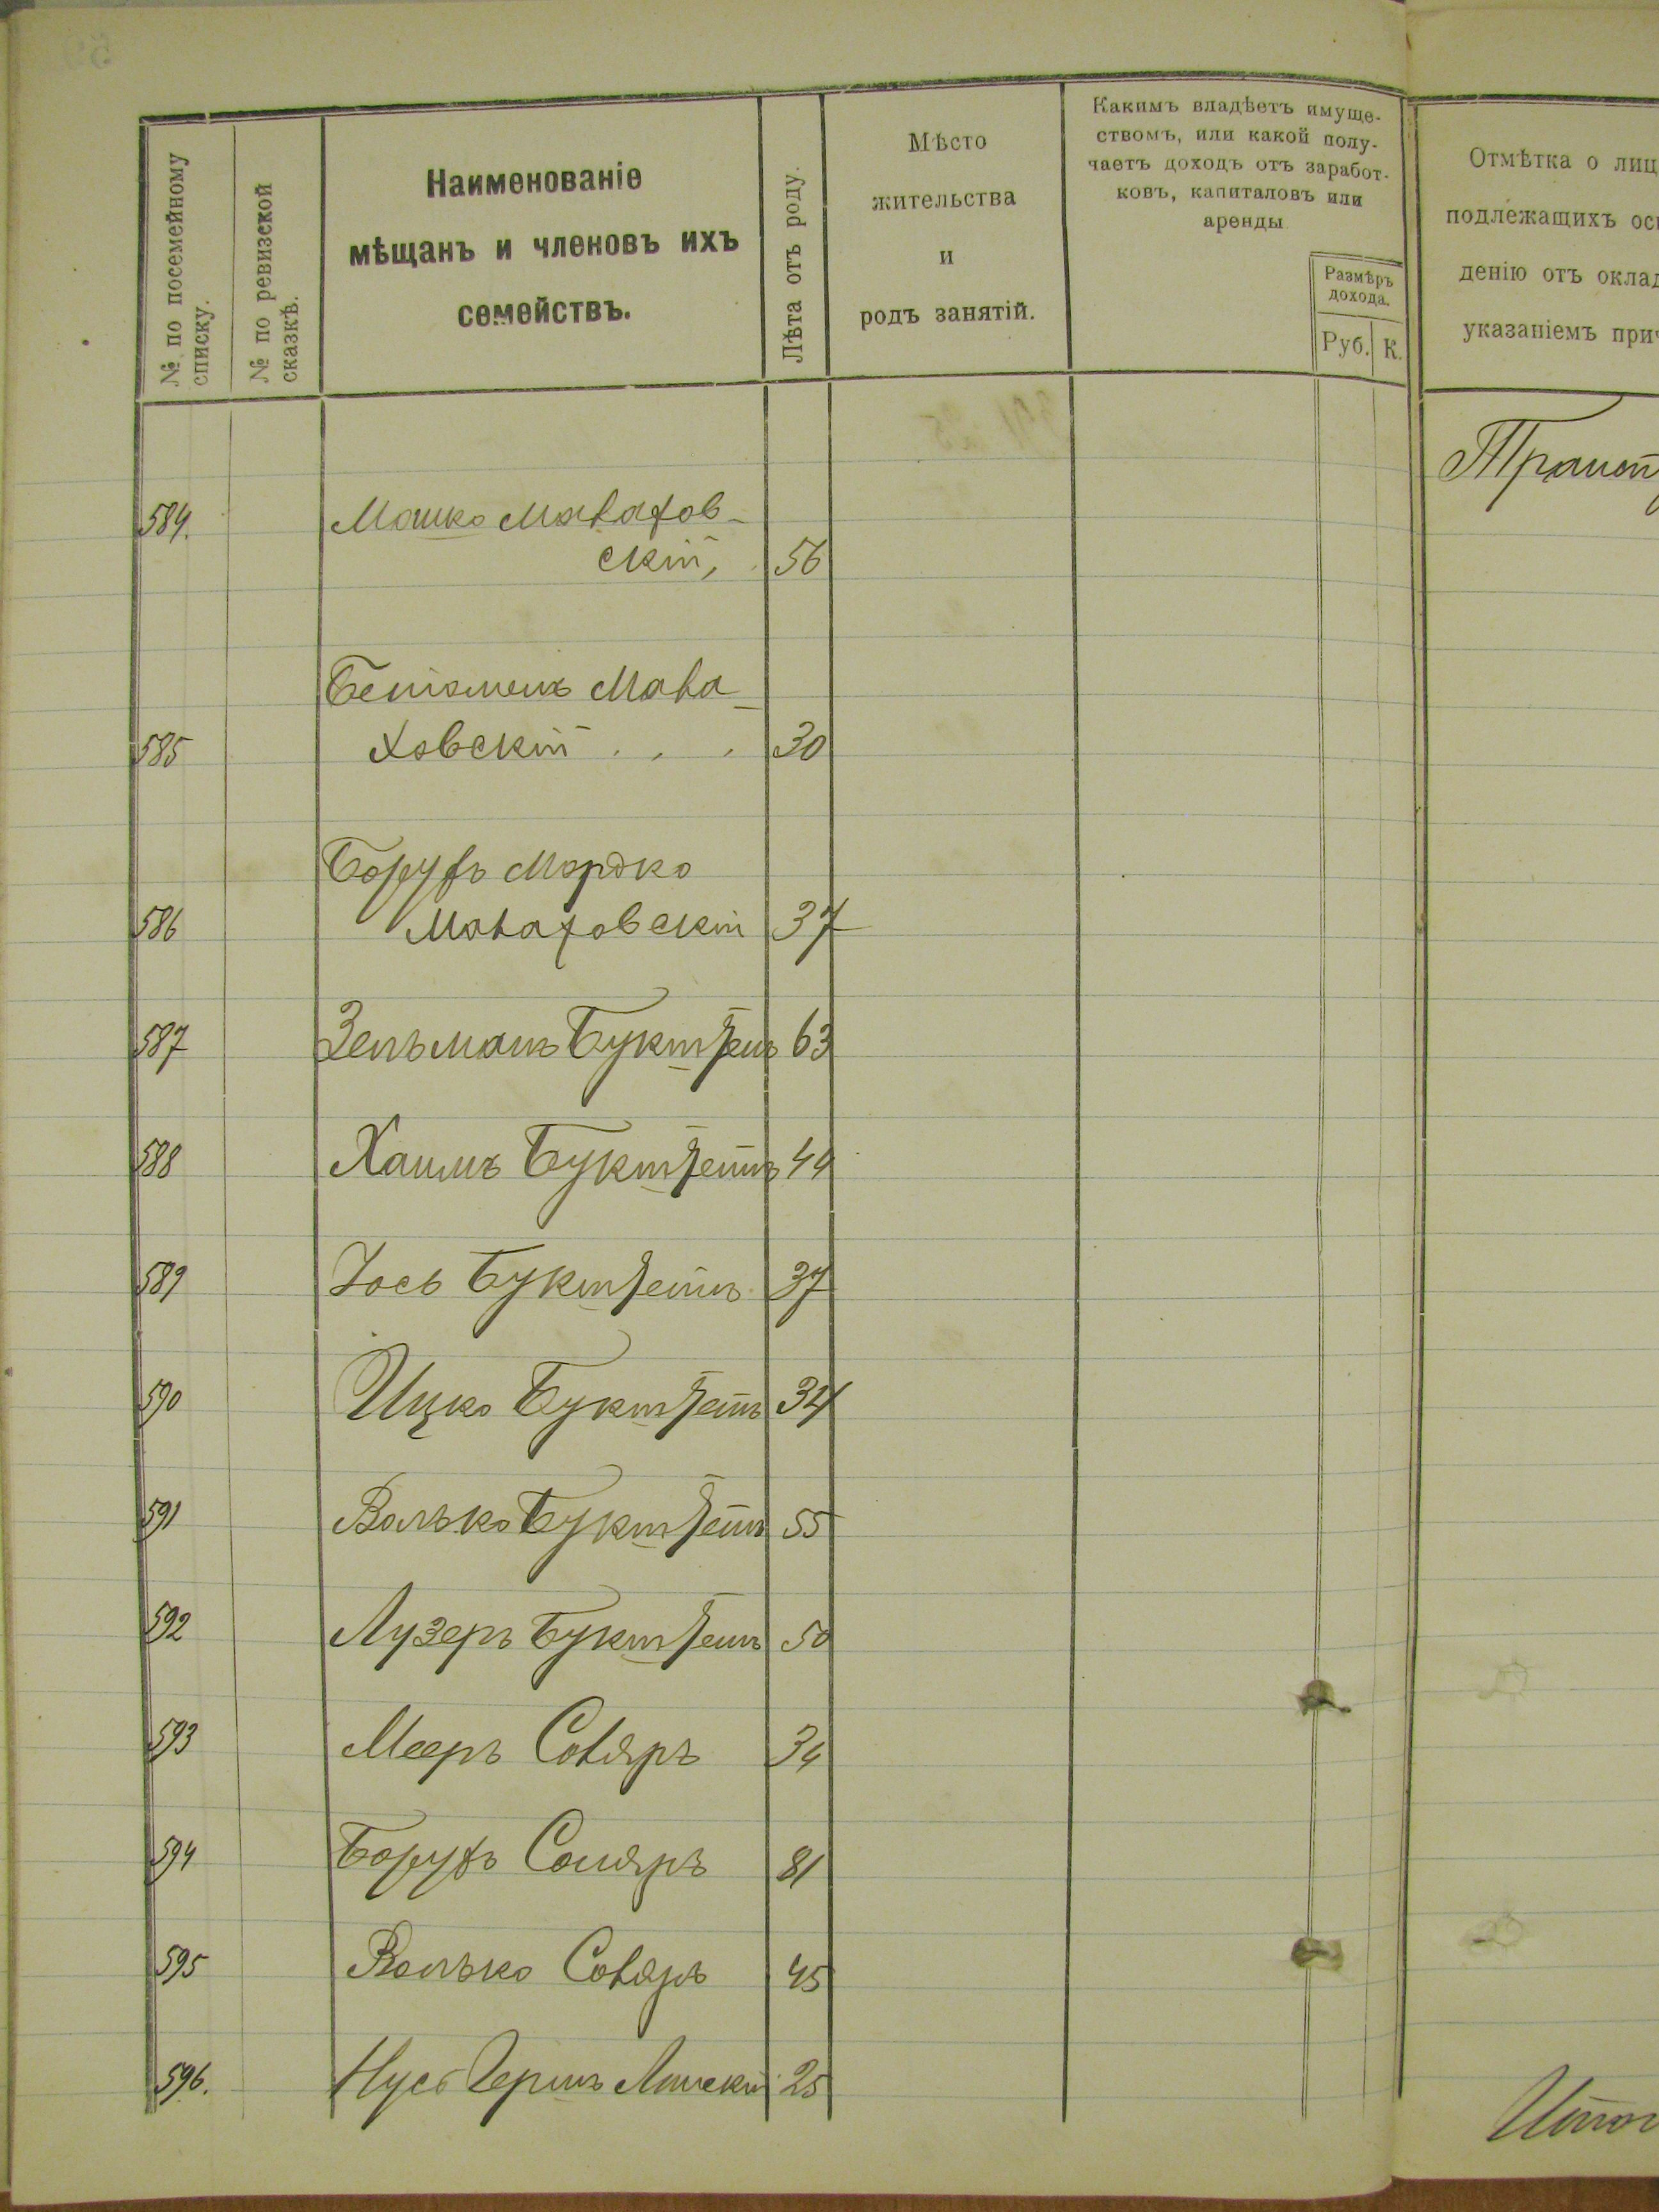 № по посемейному
списку.
№ по ревизской
сказкѣ.
Наименованіе
мѣщанъ и членовъ ихъ
семействъ.
Лѣта отъ роду.
Мѣсто
жительства
и
родъ занятій.
Какимъ владѣетъ имуще-
ствомъ, или какой полу-
чаетъ доходъ отъ заработ-
ковъ, капиталовъ или
аренды
Размѣръ
дохода.
Руб. К.
Отмѣтка о лиц
подлежащихъ ос
денію отъ оклад
указаніемъ прич
Транспо
584. Мошко Малахов-
скій, 56
Бенíоменъ Мала-
585 ховскій . . . 30
Борухъ Мордко
586 Малаховскій 37
587 Зельманъ Букштейнъ 63
588 Хаимъ Букштейнъ 44
589 Іось Букштейнъ 37
590 Ицко Букштейнъ 34
591 Волько Букштейнъ 55
592 Лузеръ Букштейнъ 50
593 Мееръ Соляръ 34
594 Борухъ Соляръ 81
595 Волько Соляръ 45
596. Нусъ Гершъ 25
Итог